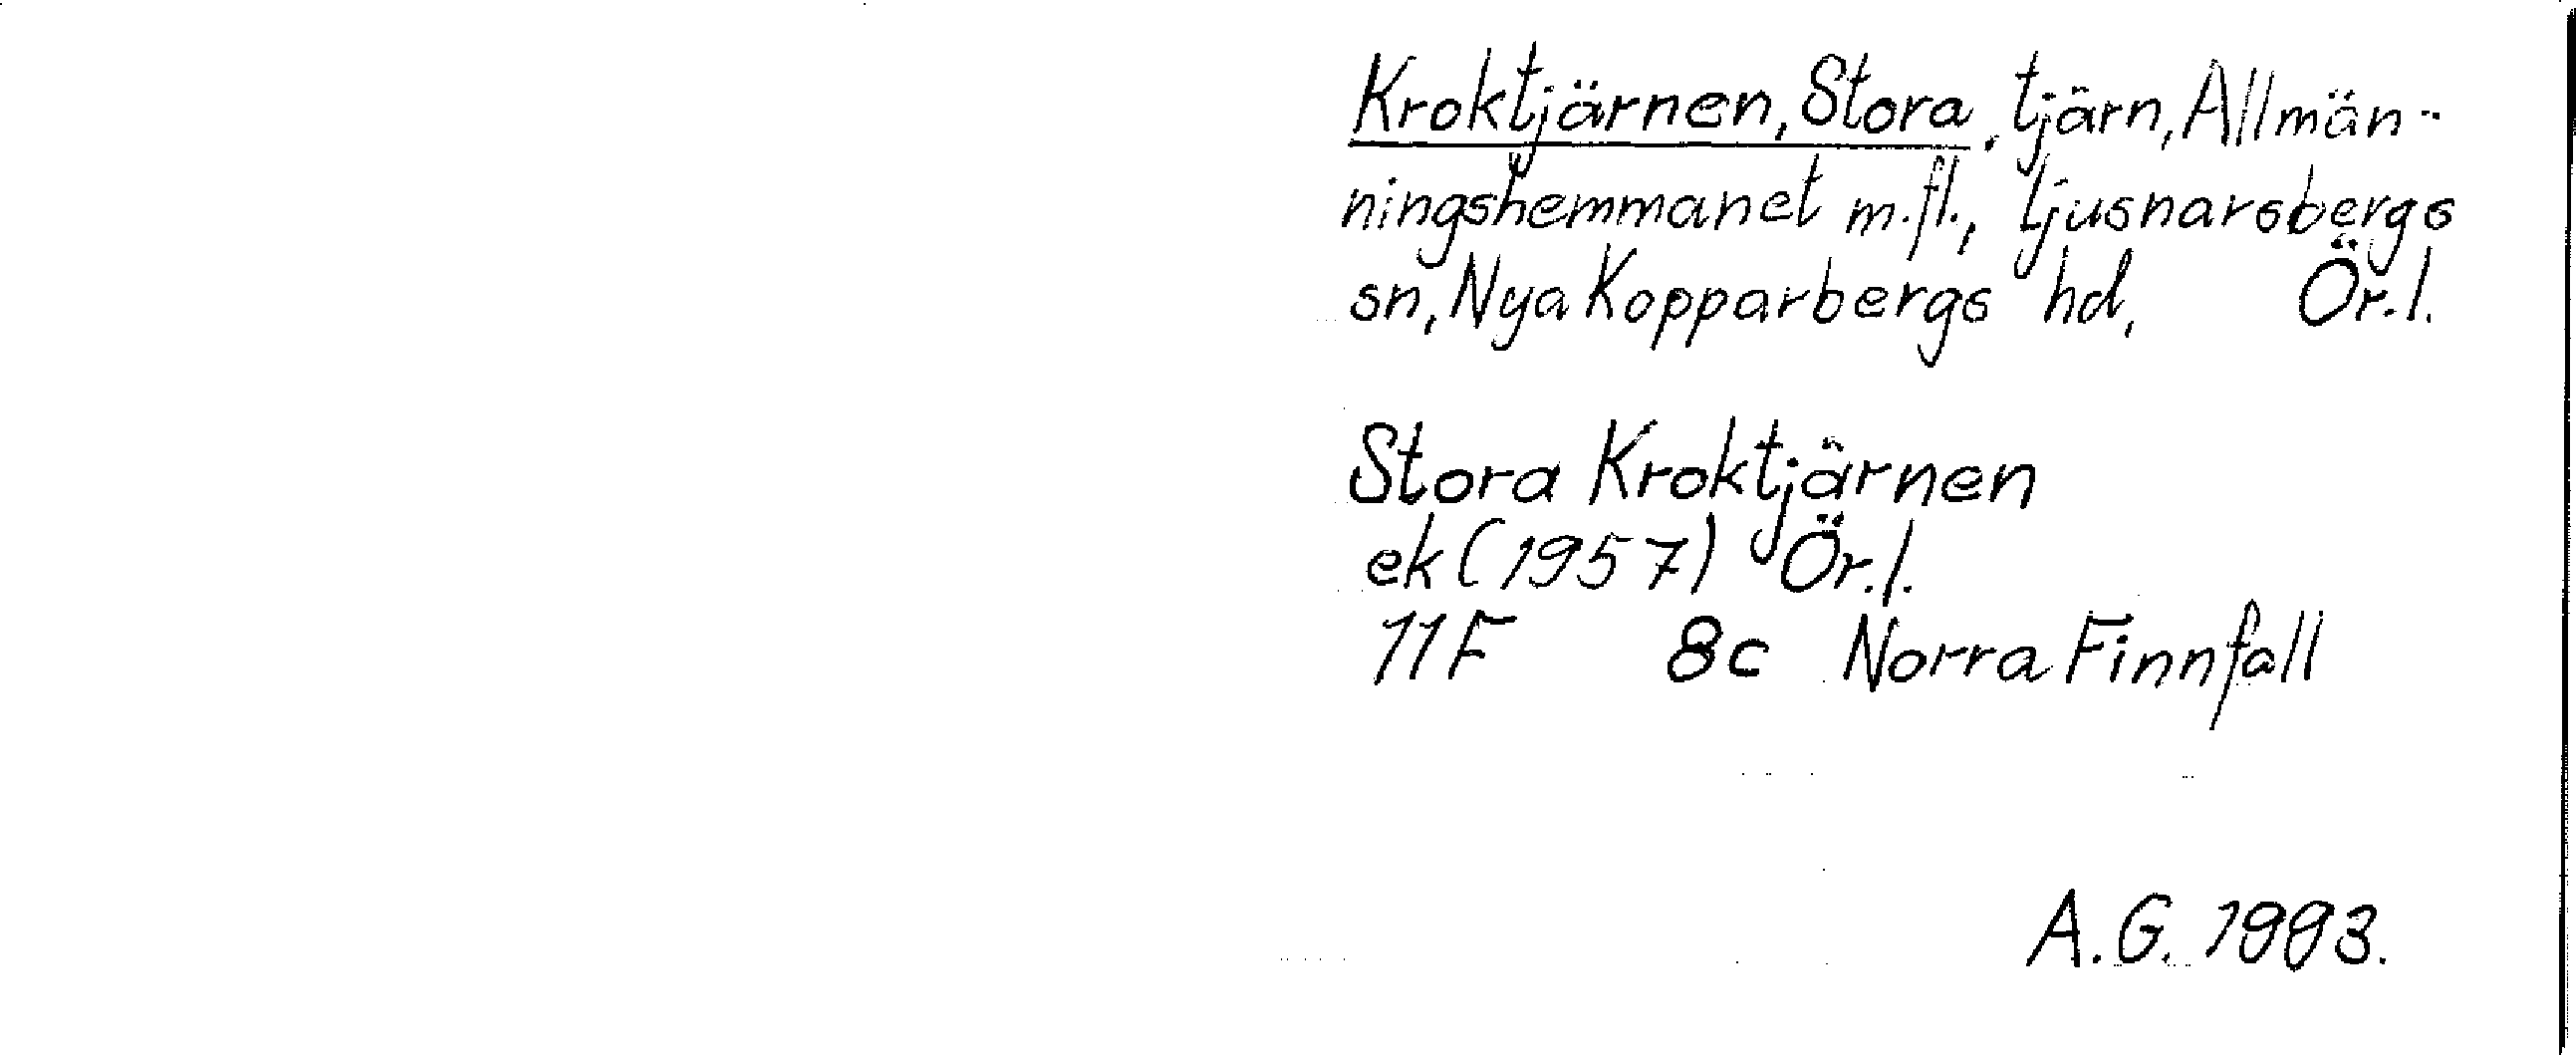 Kroktjärnen, Stora, tjärn, Allmän-
ningshemmanet m.fl., Ljusnarsbergs
sn, Nya Kopparbergs hd, Ör.l.
Stora Kroktjärnen
ek (1957) Ör.l.
11F 8c Norra Finnfall
A.G. 1993.